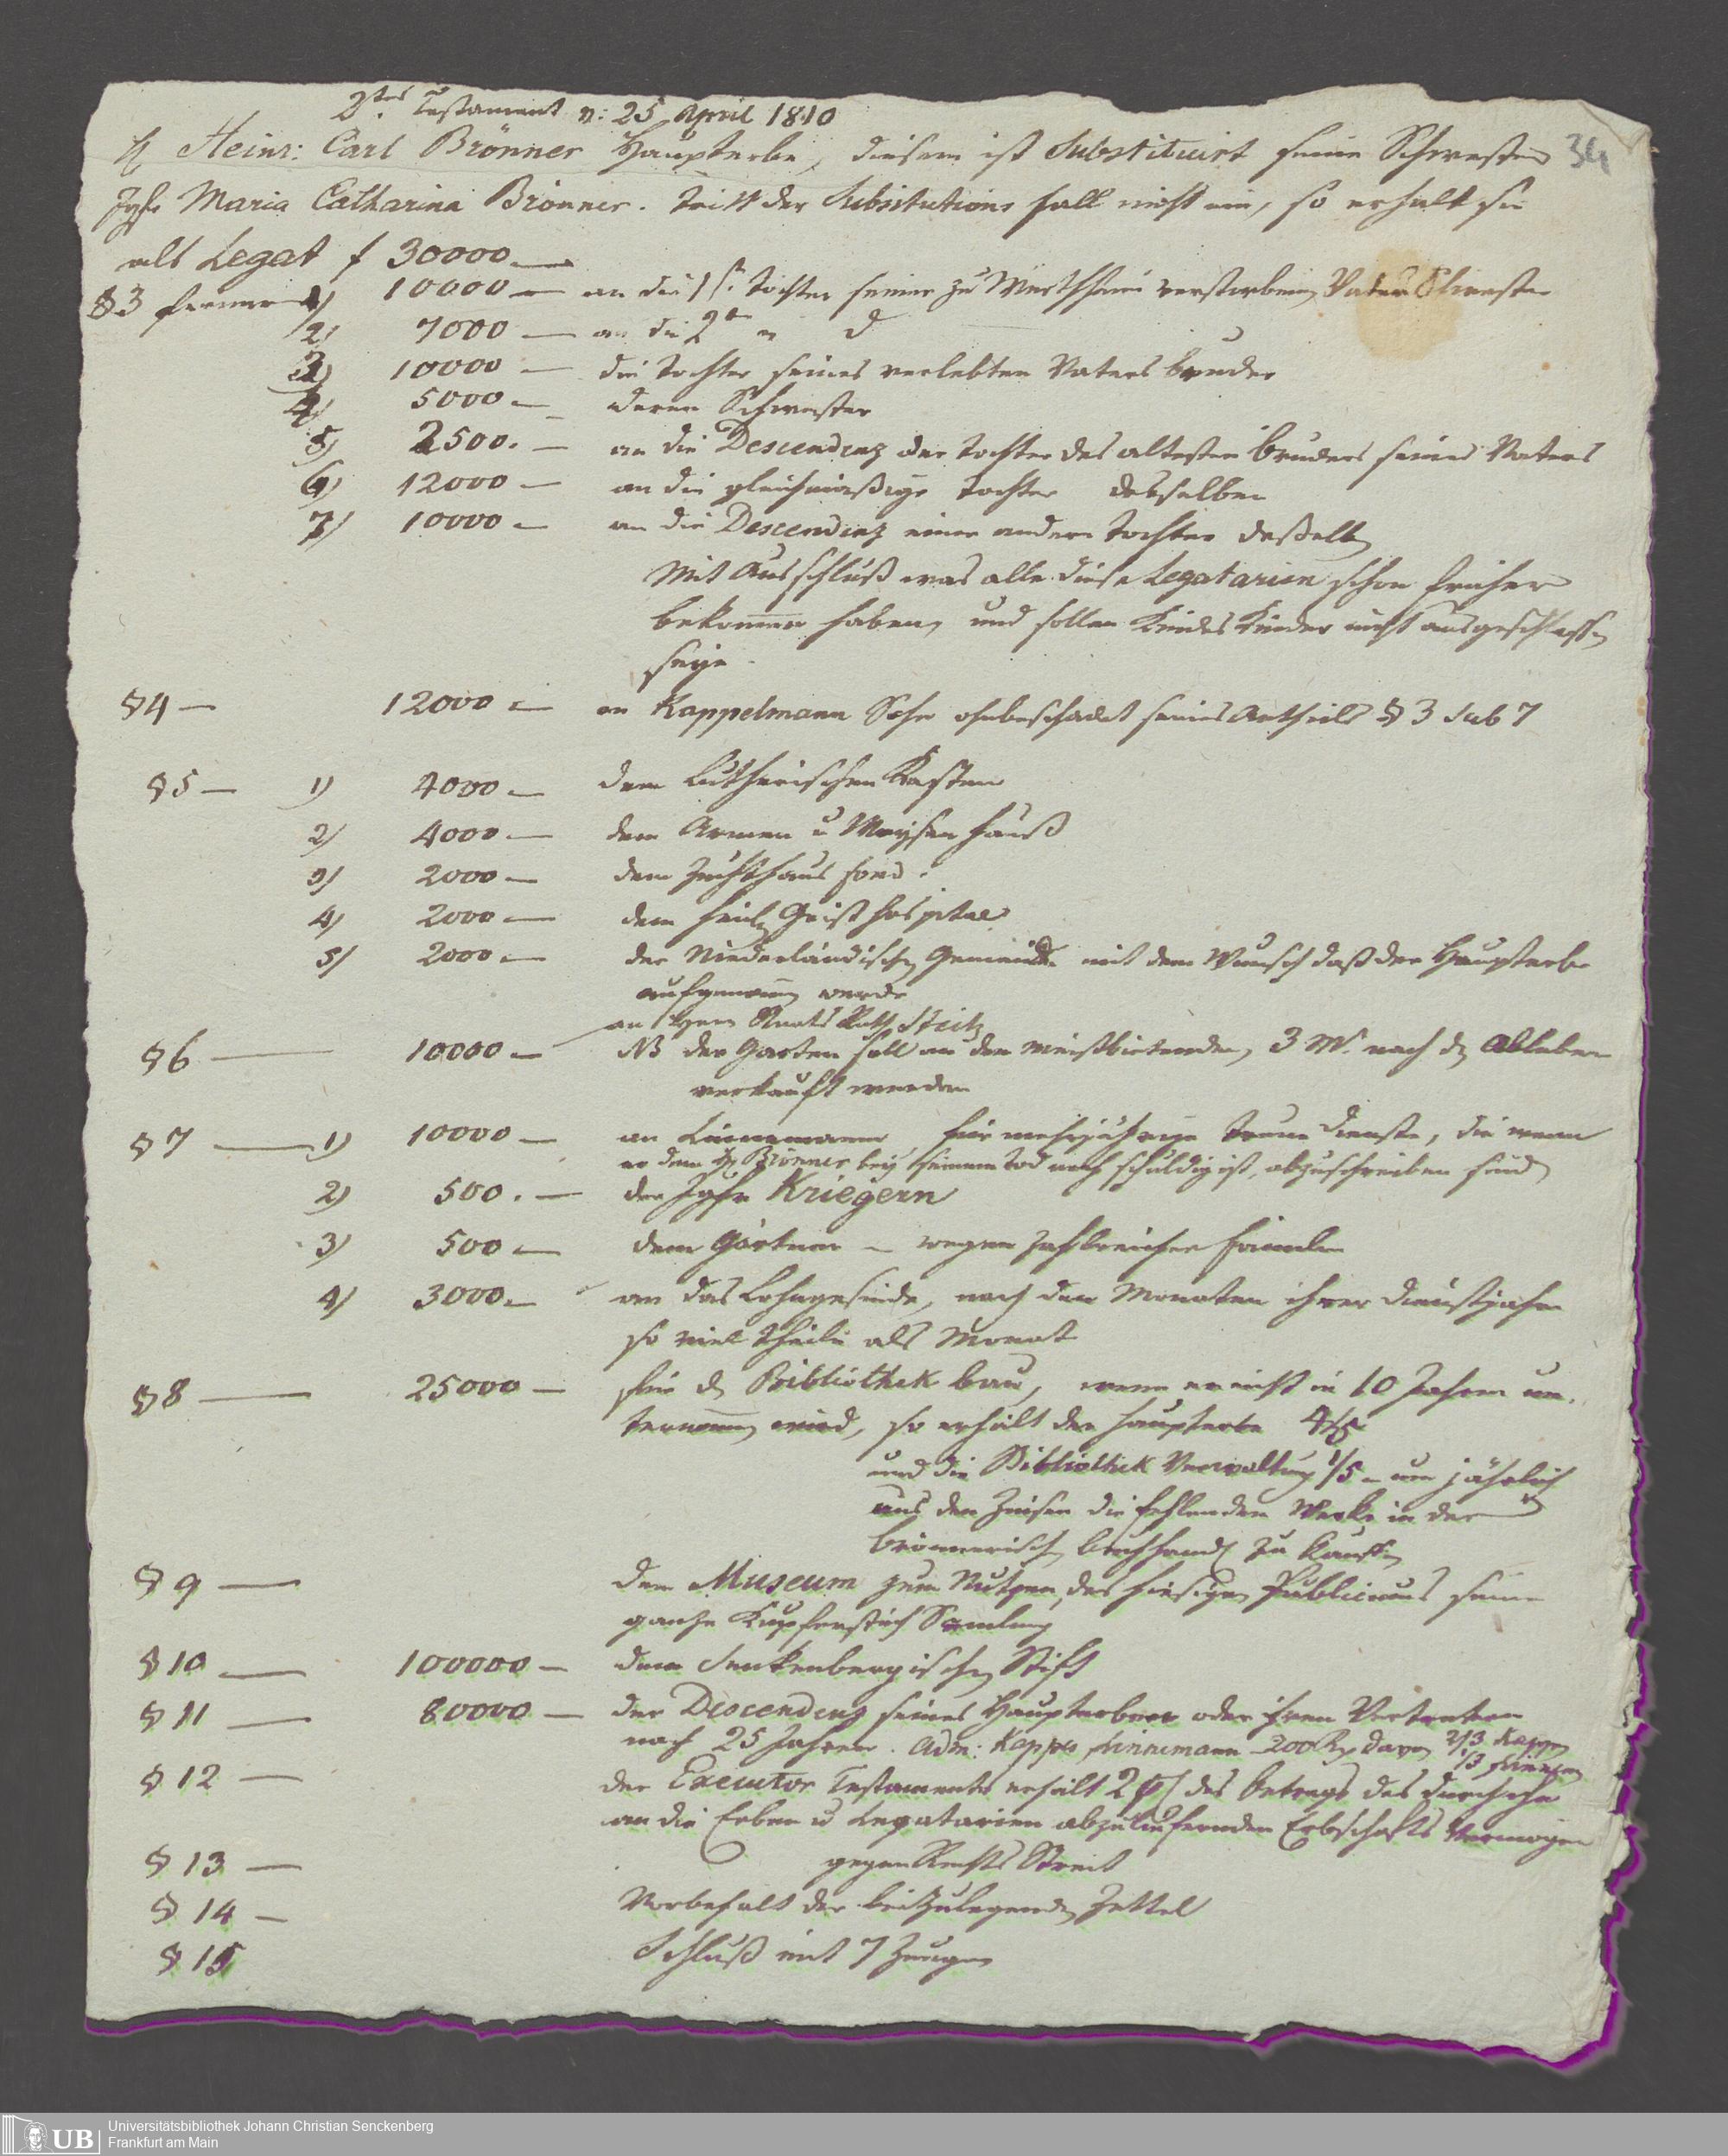 2tes Testament v: 25 April 1810
34
H Heinr: Carl Brönner Haupterbe, diesem ist Substituirt seine Schwester
Jgfr Maria Catharina Brönner. tritt der Subsitutions fall nicht ein, so erhält sie
als Legat f 30000.—
§3 ferner 1) 10000 — an die 1st. tochter seiner zu Wertheim verstorbenen Vater Schwester
2) 7000 — an die 2te " d
3) 10000 — die tochter seines verlebten Vaters bruder
4) 5000 — deren Schwester
5) 2500. — an die Descendenz der tochter des altesten bruders seines Vaters
6) 12000 — an die gleichmäßige tochter desselben
7) 10000 — an die Descendenz einer andern tochter deßelben
Mit Ausschluß was alle diese Legatarien schon früher
bekommen haben, und sollen Kindes Kinder nicht ausgeschlossen
seyn.
§4 — 12000 — an Kappelmann Sohn ohnbeschadet seines Antheils § 3 sub 7
§5 — 1) 4000 — dem Lutherischen Kasten
2) 4000 — dem Armen u Waysen hauß
3) 2000 — dem Zuchthaus fond.
4) 2000 — dem heilg Geist hospital
5) 2000 — der Niederländischen Gemeinde mit dem Wunsch daß der Haupterbe
aufgenommen werde
an Herrn Staats Rath Steitz
§6 — 10000 — NB der Garten soll an den meistbietenden, 3 M. nach d Ableben
verkauft werden
§7 — 1) 10000 — an Linnemann, für mehrjährige treue dienste, die wenn
er dem H Brönner bey seinem tod noch schuldig ist, abzuschreiben sind
2) 500. — der Jgfr Kriegern
3) 500 — dem Gärtner — wegen zahlreicher familie
4) 3000 — an das Lohngesinde, nach den Monaten ihrer dienstjahre
so viel theile als Monat
§8 — 25000 — für d Bibliothek bau, wenn er nicht in 10 Jahren un-
ternommen wird, so erhält der haupterbe 4/5
und die Bibliothek Verwaltung 1/5 — um jährlich
aus den Zinsen die fehlenden Werke in der
brönnerisch buchhandl zu kaufen
§ 9 — dem Museum zum Nutzen des hiesigen Publicums seine
ganze Kupferstich Samlung
§ 10 — 100000 — dem Senkenbergischen Stift
§ 11 — 80000 — der Descendenz seines Haupterben oder ihren Vertretern
nach 25 Jahren. Adm: Kappes Linnemann 200 davon 2/3 Kappes
1/3 Linnem
§ 12 — der Executor Testamenti erhält 2 des betrags des
an die Erben u Legatarien abzuliefernden Erbschafts Vermögen
§ 13 — gegen Rechts Streit
§ 14 — Vorbehalt der beizulegenden Zettel
§ 15 Schluß mit 7 Zeugen
UB Universitätsbibliothek Johann Christian Senckenberg
Frankfurt am Main